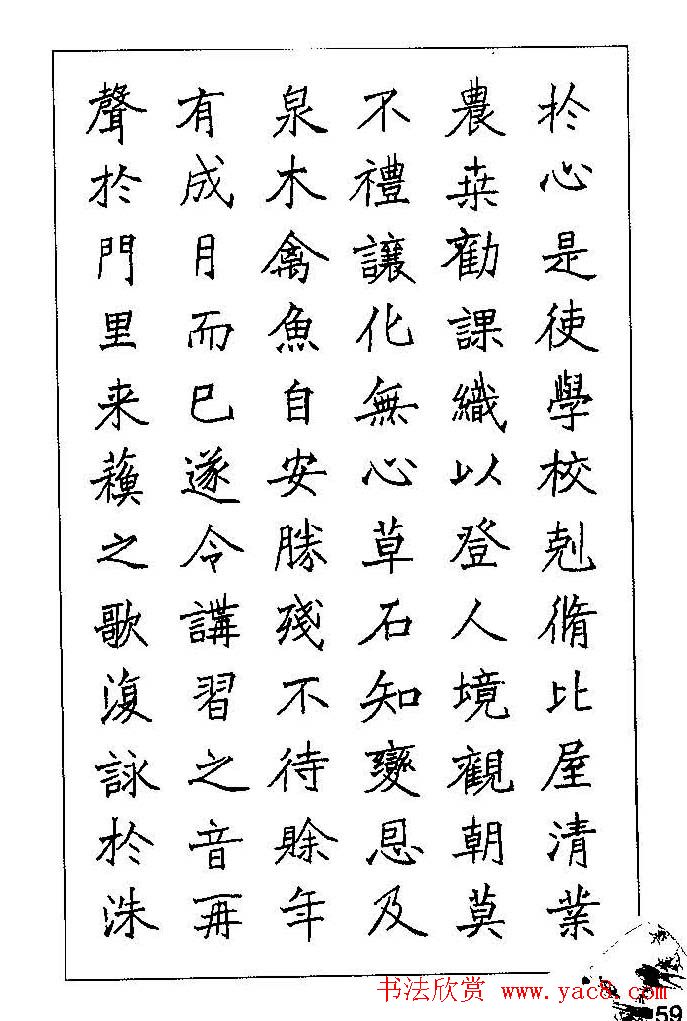 扵心是使學校剋脩比屋清業
農桒勸課織以登人境觀朝莫
不禮讓化無心草石知變恩及
泉木禽魚自安勝殘不待賒年
有成月而已遂令講習之音再
聲扵門里来蘓之歌復詠扵洙
书法欣赏 www.yac8.com
59